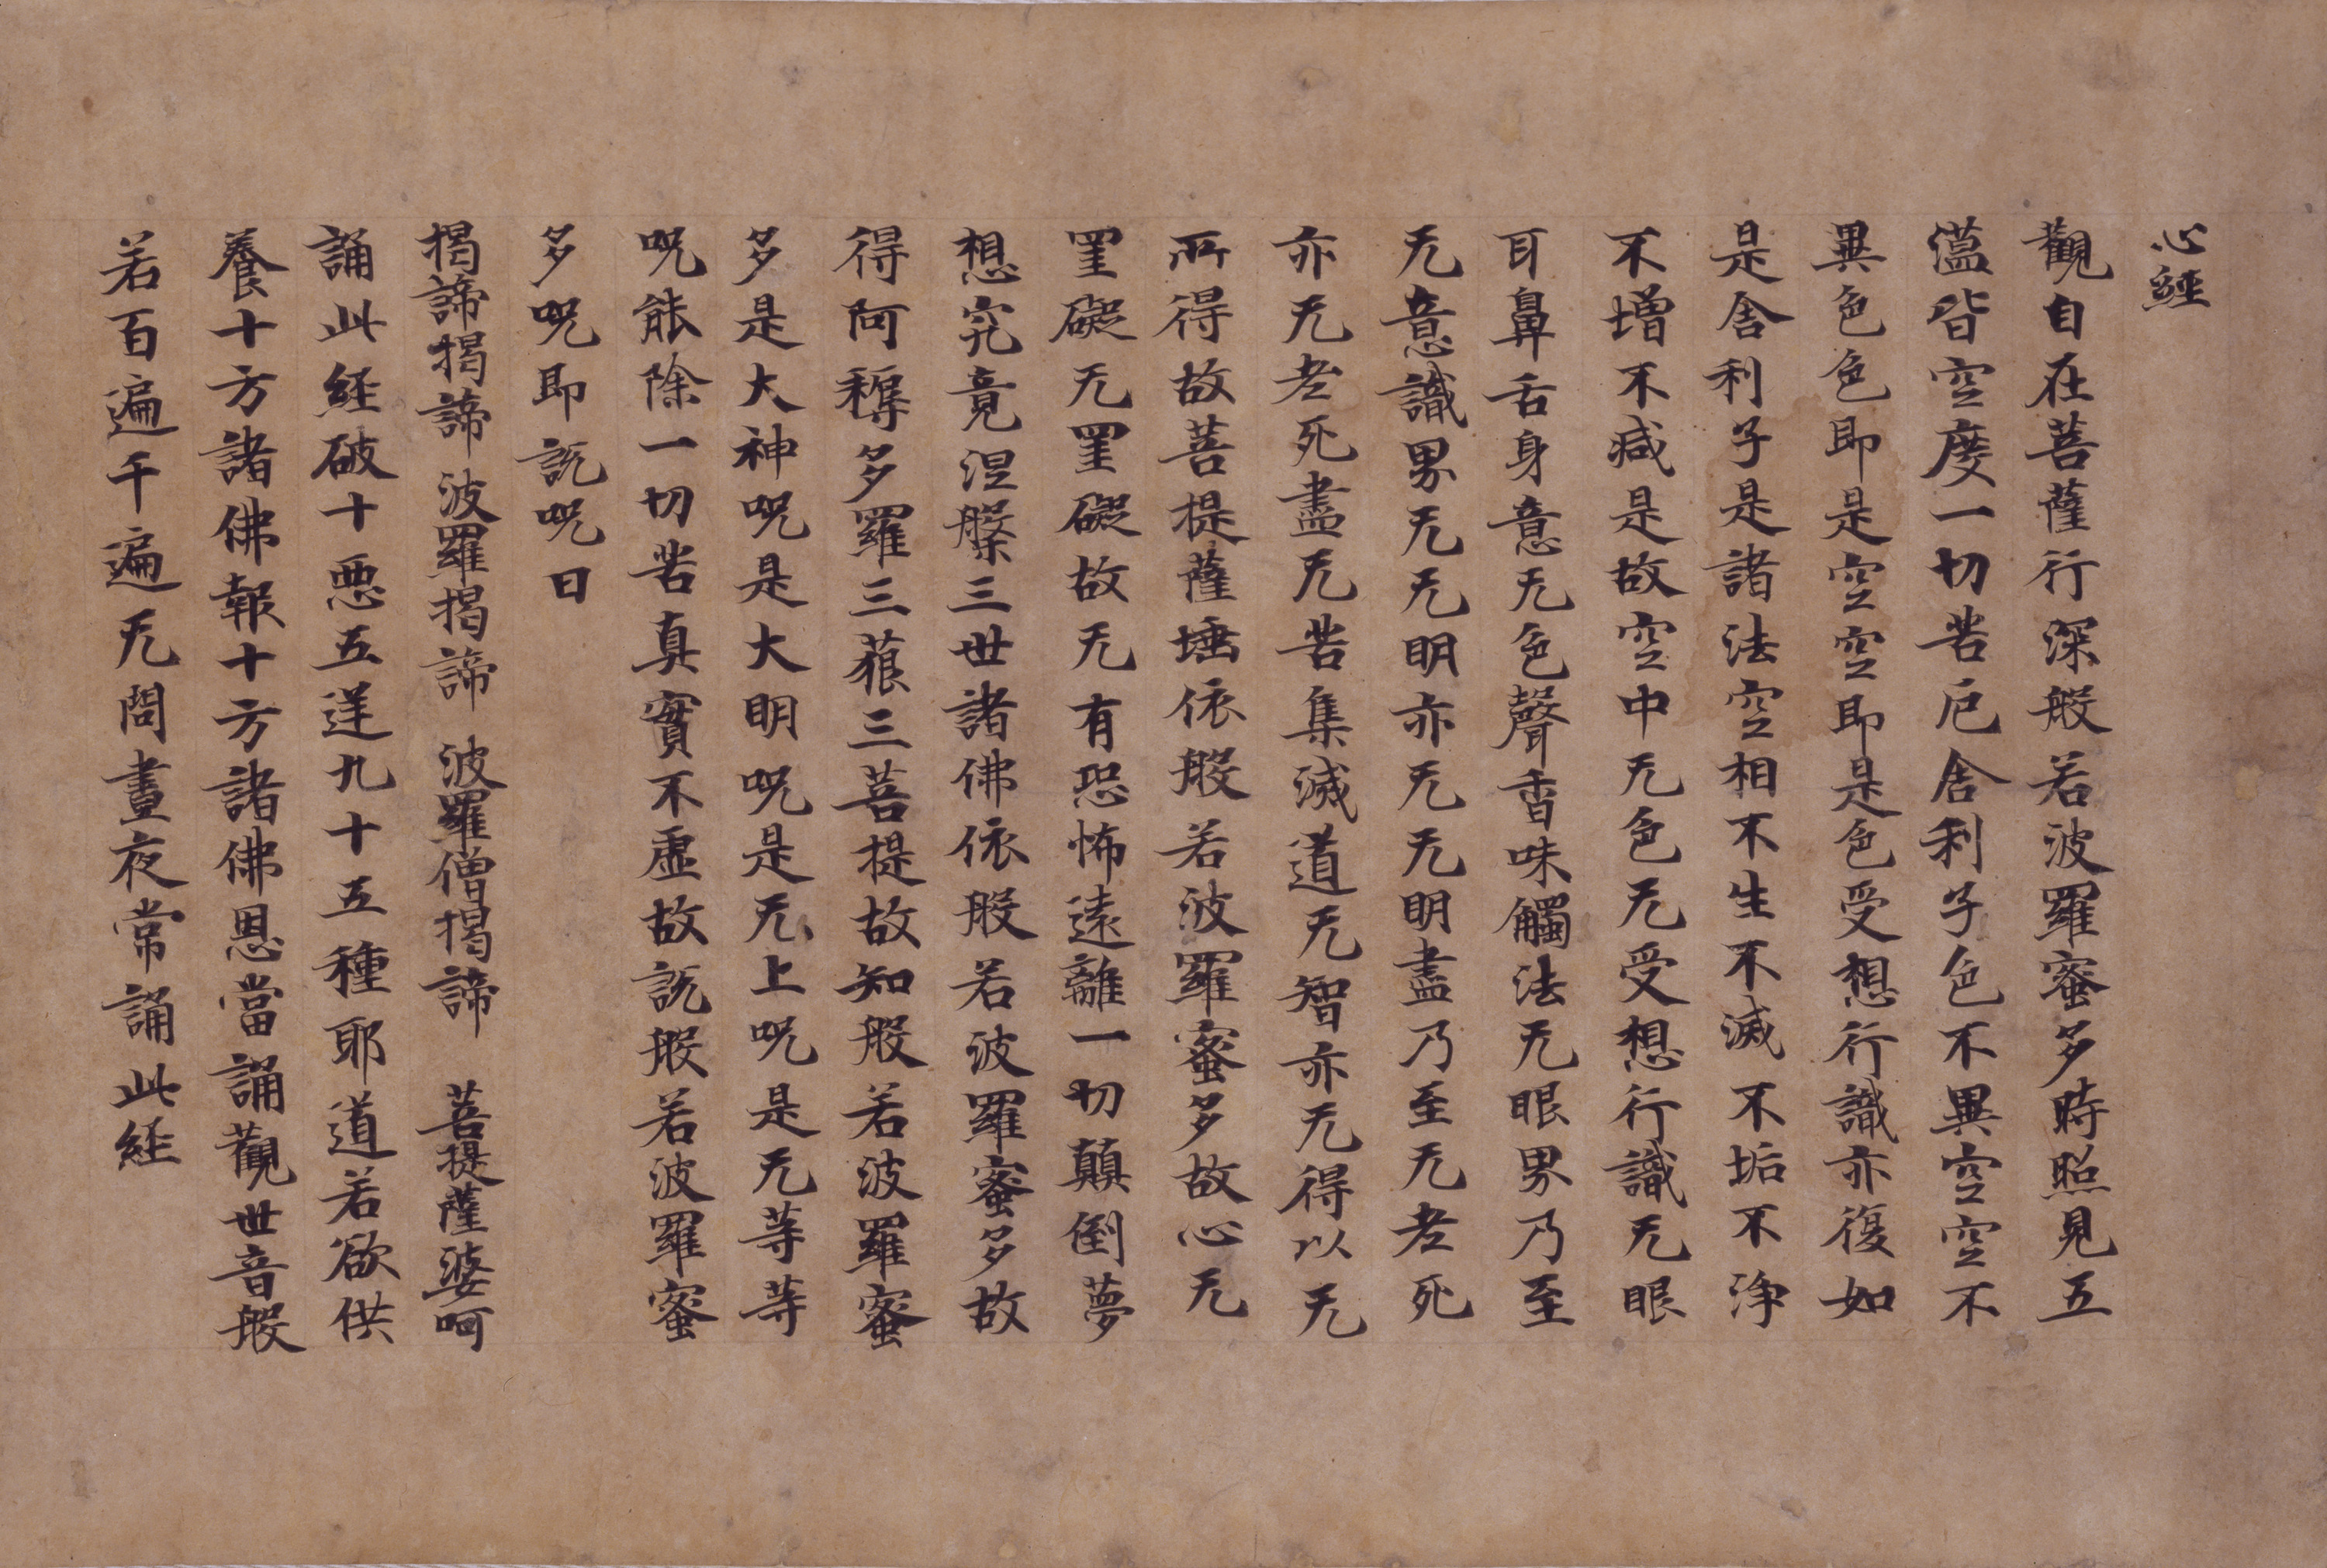 心經
觀自在菩薩行深般若波羅蜜多時照見五
薀皆空度一切苦厄舍利子色不異空空不
異色色即是空空即是色受想行識亦復如
是舍利子是諸法空相不生不滅不垢不浄
不增不減是故空中无色无受想行識无眼
耳鼻舌身意无色聲香味觸法无眼界乃至
无意識界无无明亦无无明盡乃至无老死
亦无老死盡无苦集滅道无智亦无得以无
所得故菩提薩埵依般若波羅蜜多故心无
罣礙无罣礙故无有恐怖遠離一切顛倒夢
想究竟涅槃三世諸佛依般若波羅蜜多故
得阿耨多羅三藐三菩提故知般若波羅蜜
多是大神呪是大明呪是无上呪是无等等
呪能除一切苦真實不虛故説般若波羅蜜
多呪即説呪曰
揭諦揭諦 波羅揭諦 波羅僧揭諦 菩提薩婆呵
誦此経破十惡五逆九十五種耶道若欲供
養十方諸佛報十方諸佛恩當誦觀世音般
若百遍千遍无問晝夜常誦此経